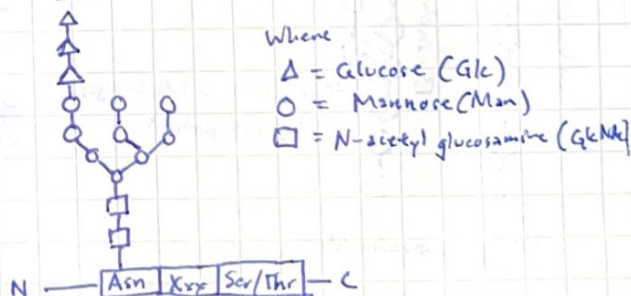 Where
Δ = Glucose (Glc)
O = Mannose (Man)
□ = N-acetyl glucosamine (GlcNAc)
N Asn Xxx Ser/Thr C